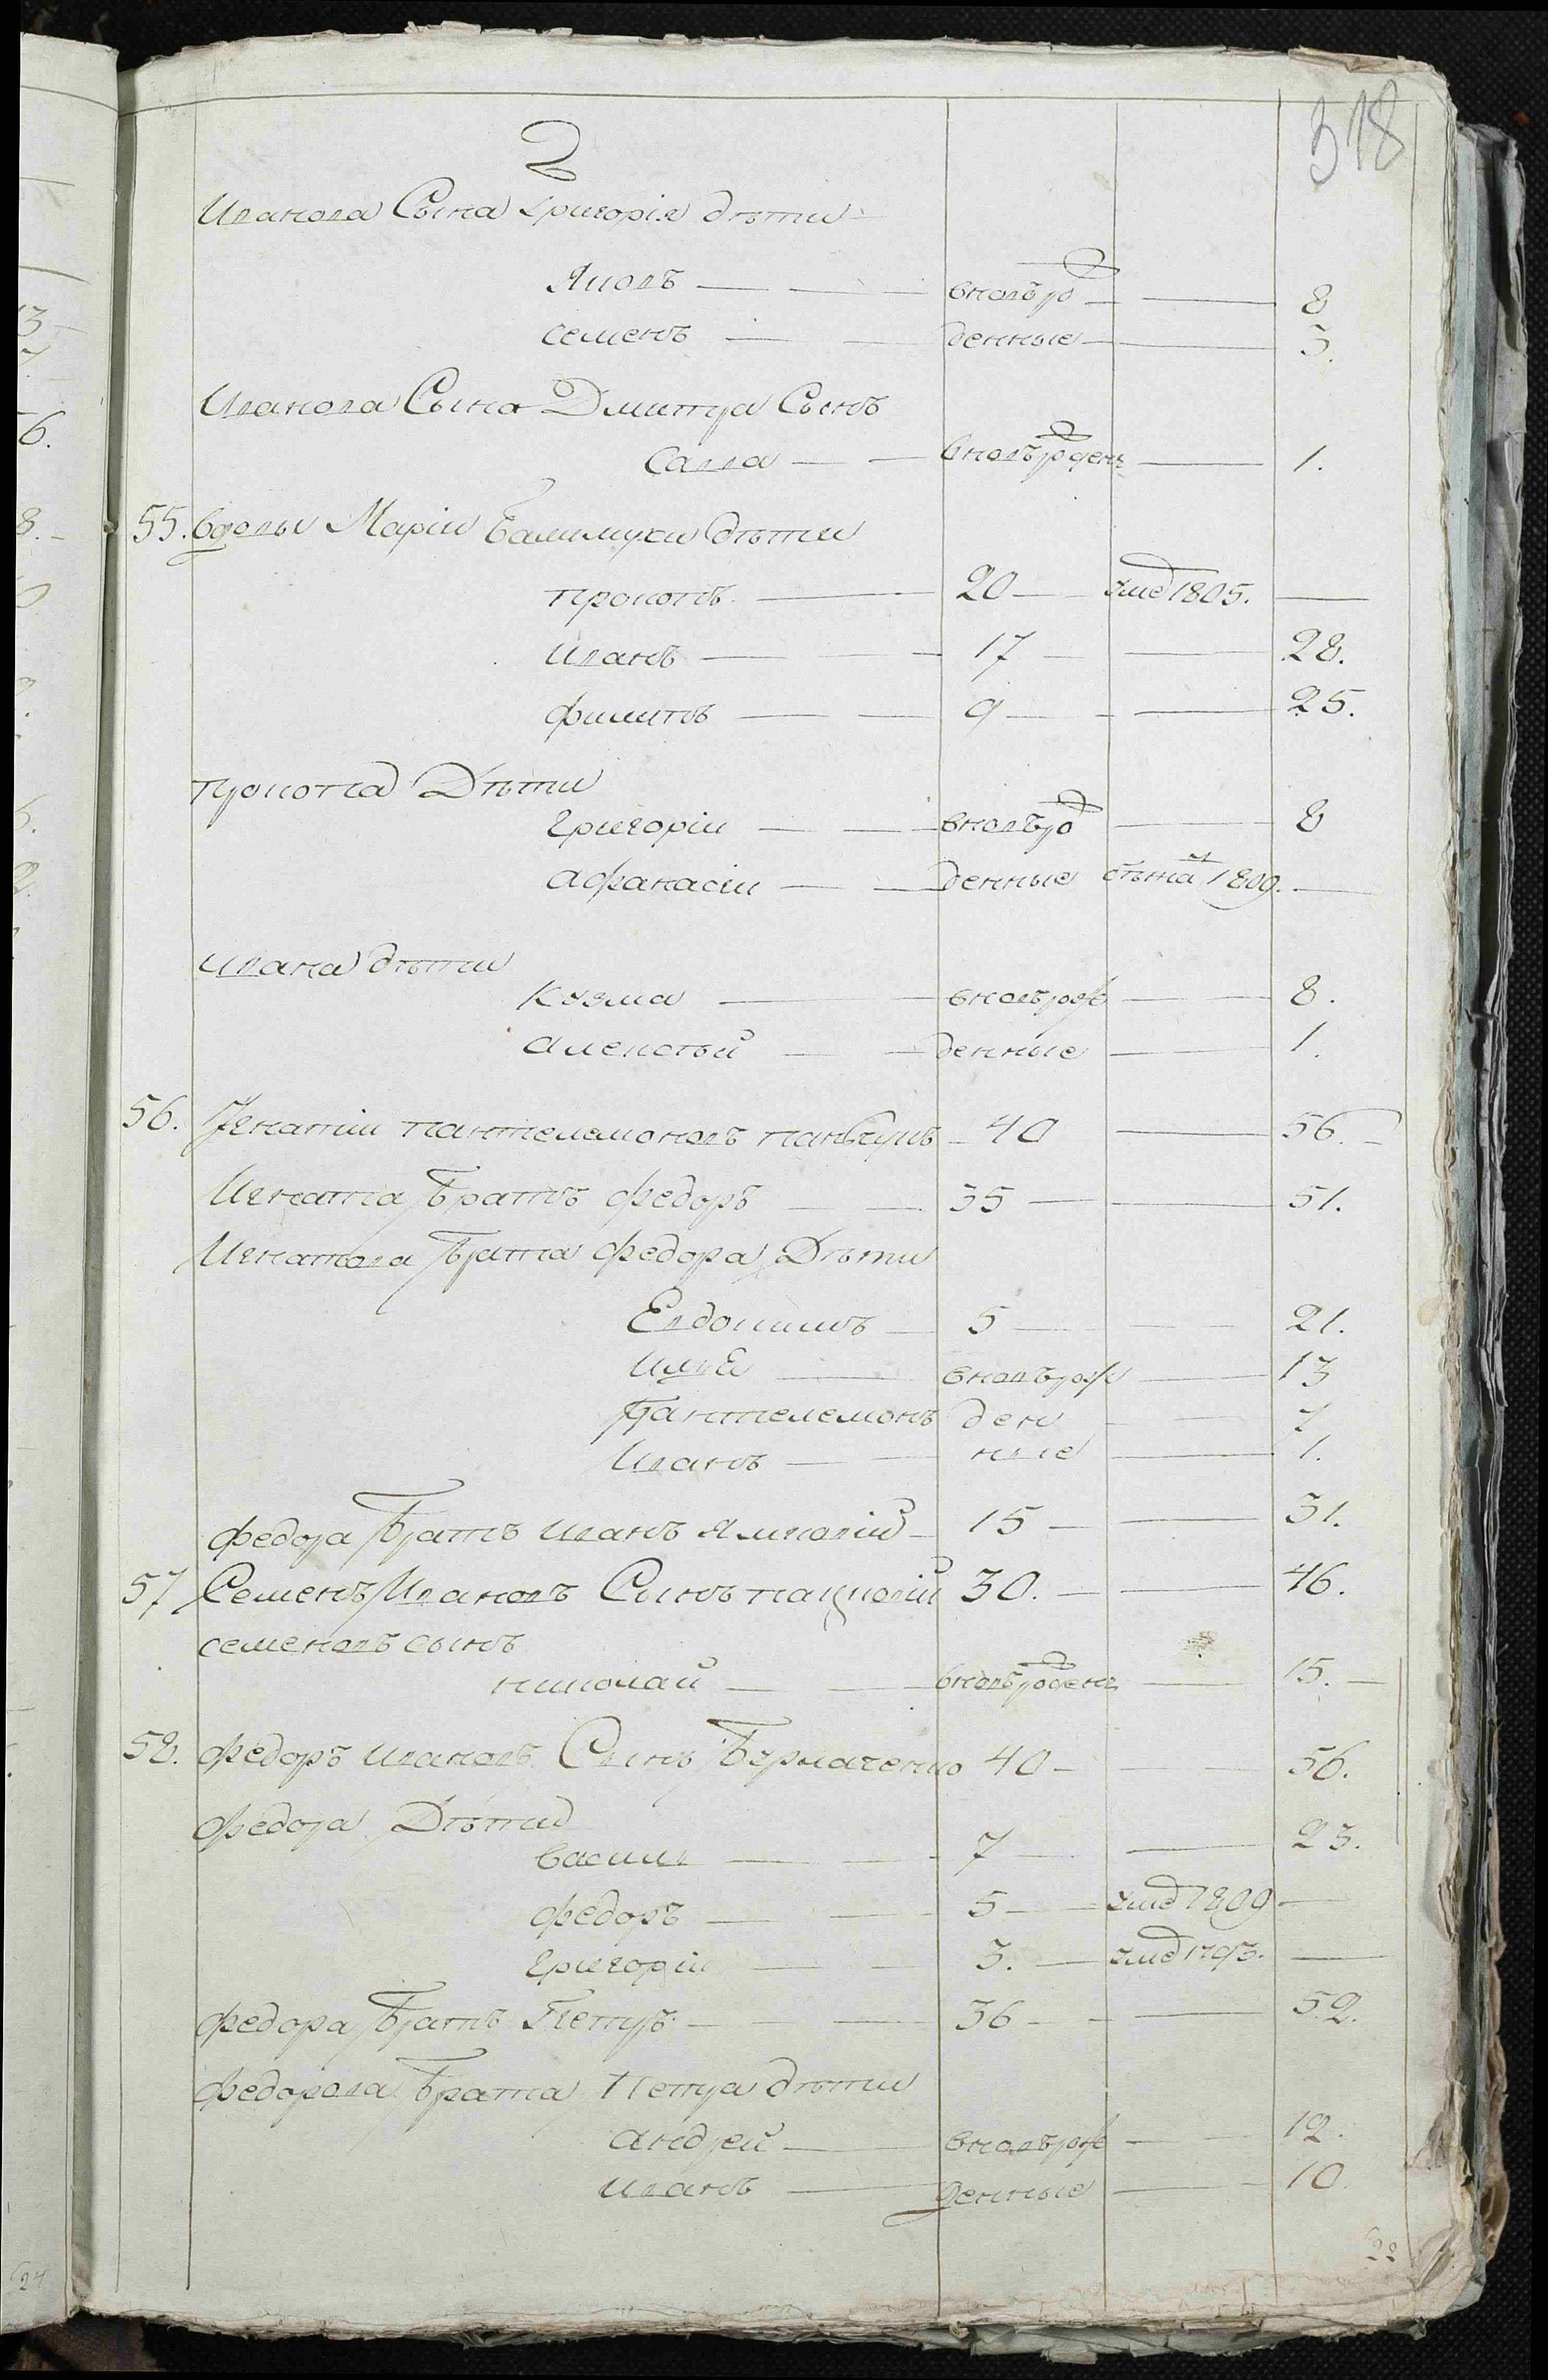 318
2
Иванова Сына Григорія дѣти
Яковъ — — вновь ро — — 8
семенъ — — жденные — — 3.
Иванова Сына Дмитра Сынъ
Савва — — вновь рожден — 1.
55. вдовы Маріи дѣти
прокопъ — 20 — умре 1805. —
иванъ — — 17 — — 28.
филипъ — — 9 — — 25.
прокопа Дѣти
григоріи — — вновь ро — 8
афанасіи — — жденные 1809. —
ивана дѣти
кузма — — вновь рож — — 8.
алексѣй — — денные — 1.
56. Игнатіи пантелемоновъ — 40 — 56. —
Игната братъ федоръ — — 35 — — 51.
Игнатова брата федора Дѣти
Евдокимъ — 5 — — 21.
илья — вновь рож — 13
Пантелемонъ ден — — 7
Иванъ — — ные — 1.
федора братъ иванъ — 15 — — 31.
57 Семенъ Ивановъ Сынъ 30. — — 46.
семеновъ сынъ
николай — — вновь рожден — 15. —
58. федоръ ивановъ Сынъ Бурлаченко 40 — — — 56.
федора Дѣти
василь — — 7 — — 23.
федоръ — — 5 — умре 1809 —
григоріи — — 3. — умре 1793. —
федора братъ Петръ — — 36 — — 52.
федорова брата Петра дѣти
андрей — вновь рож — — 12.
иванъ — денные — — 10.